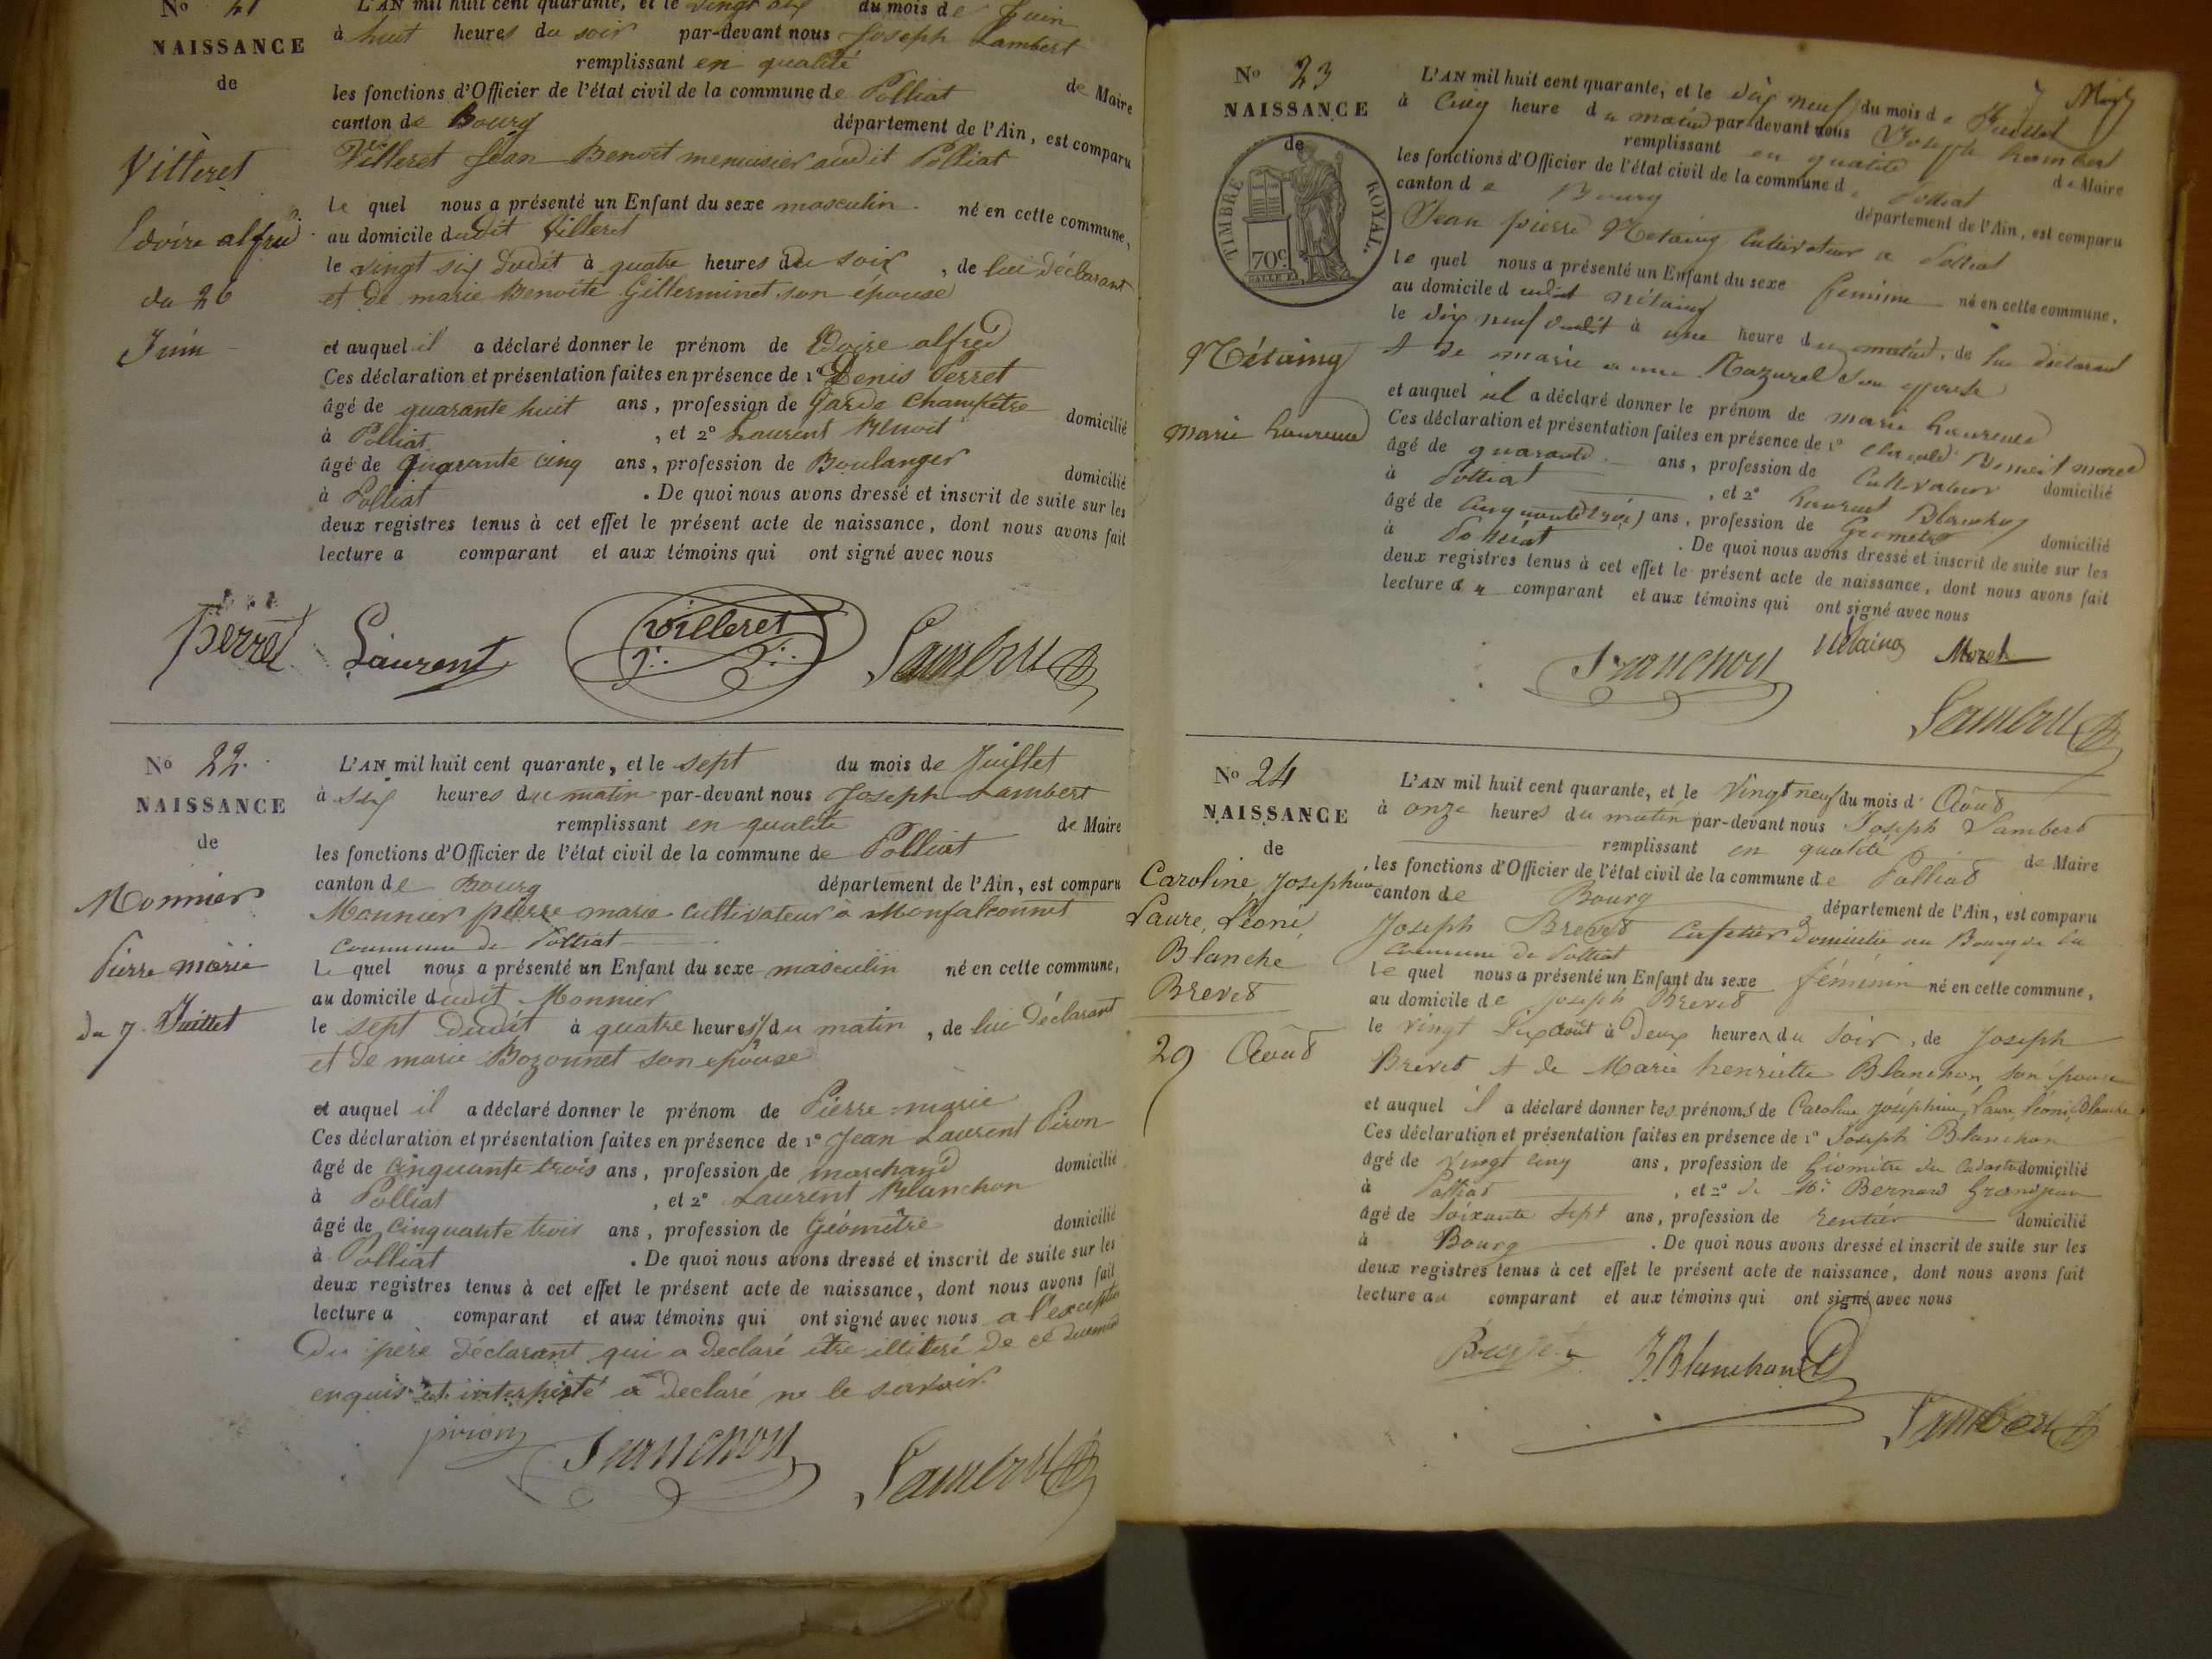 No 21
NAISSANCE
de
Villeret
Edoire alfred
du 26
Juin
L'AN mil huit cent quarante, et le vingt six du mois de Juin
à huit heures du soir par-devant nous Joseph Lambert
remplissant en qualité de Maire
les fonctions d'Officier de l'état civil de la commune de Polliat
canton de Bourg département de l'Ain, est comparu
Villeret Jean Benoit menuisier audit Polliat
le quel nous a présenté un Enfant du sexe masculin né en cette commune,
au domicile dudit Villeret
le vingt six dudit à quatre heures du soir, de lui déclarant
et de marie Benoite Gillerminet son épouse
et auquel il a déclaré donner le prénom de Edoire alfred
Ces déclaration et présentation faites en présence de 1° Denis Perret
âgé de quarante huit ans, profession de Garde Champêtre domicilié
à Polliat, et 2° Laurent Benoit
âgé de quarante cinq ans, profession de Boulanger domicilié
à Polliat. De quoi nous avons dressé et inscrit de suite sur les
deux registres tenus à cet effet le présent acte de naissance, dont nous avons fait
lecture a comparant et aux témoins qui ont signé avec nous
Perret Laurent Villeret Lambert
No 22
NAISSANCE
de
Monnier
Pierre marie
du 7 Juillet
L'AN mil huit cent quarante, et le sept du mois de Juillet
à six heures du matin par-devant nous Joseph Lambert
remplissant en qualité de Maire
les fonctions d'Officier de l'état civil de la commune de Polliat
canton de Bourg département de l'Ain, est comparu
Monnier pierre marie cultivateur à Monfalconnet
commune de Polliat
le quel nous a présenté un Enfant du sexe masculin né en cette commune,
au domicile dudit Monnier
le sept dudit à quatre heures du matin, de lui déclarant
et de marie Bozonnet son epouse
et auquel il a déclaré donner le prénom de Pierre marie
Ces déclaration et présentation faites en présence de 1° Jean Laurent Piron
âgé de cinquante trois ans, profession de marchand domicilié
à Polliat, et 2° Laurent Blanchon
âgé de cinquante trois ans, profession de Géomètre domicilié
à Polliat. De quoi nous avons dressé et inscrit de suite sur les
deux registres tenus à cet effet le présent acte de naissance, dont nous avons fait
lecture a comparant et aux témoins qui ont signé avec nous a l'exception
du père déclarant qui a declaré être illiteré de ce duement
enquis et interpellé a declaré ne le savoir
piron Lambert
No 23
NAISSANCE
de
TIMBRE ROYAL
70c
Nétaing
marie Laurence
L'AN mil huit cent quarante, et le dix neuf du mois de Juillet
à Cinq heure du matin par-devant nous Joseph Lambert
remplissant en qualité de Maire
les fonctions d'Officier de l'état civil de la commune de Polliat
canton de Bourg département de l'Ain, est comparu
Jean pierre Nétaing Cultivateur a Polliat
le quel nous a présenté un Enfant du sexe feminin né en cette commune,
au domicile dudit nétaing
le dix neuf dudit à une heure du matin, de lui déclarant
et de marie anne Nazurel son epouse
et auquel il a déclaré donner le prénom de marie Laurence
Ces déclaration et présentation faites en présence de 1° Claude Benoit morel
âgé de quarante ans, profession de Cultivateur domicilié
à Polliat, et 2° Laurent Blanchon
âgé de cinquante trois ans, profession de Geometre domicilié
à Polliat. De quoi nous avons dressé et inscrit de suite sur les
deux registres tenus à cet effet le présent acte de naissance, dont nous avons fait
lecture au comparant et aux témoins qui ont signé avec nous
Nétaing Morel
Lambert
No 24
NAISSANCE
de
Caroline, Josephine
Laure, Léoni,
Blanche
Brevet
29 Août
L'AN mil huit cent quarante, et le Vingt neuf du mois d' Août
à onze heures du matin par-devant nous Joseph Lambert
remplissant en qualité de Maire
les fonctions d'Officier de l'état civil de la commune de Polliat
canton de Bourg département de l'Ain, est comparu
Joseph Brevet domicilié au Bourg de la
commune de Polliat
le quel nous a présenté un Enfant du sexe féminin né en cette commune,
au domicile de Joseph Brevet
le vingt août à deux heures du soir, de Joseph
Brevet et de Marie henriette Blanchon, son épouse
et auquel il a déclaré donner les prénoms de Caroline Joséphine, Laure, Léoni, Blanche
Ces déclaration et présentation faites en présence de 1° Joseph Blanchon
âgé de vingt cinq ans, profession de Géomètre du Cadastre domicilié
à Polliat, et 2° de Mr Bernard Grandjean
âgé de soixante sept ans, profession de rentier domicilié
à Bourg. De quoi nous avons dressé et inscrit de suite sur les
deux registres tenus à cet effet le présent acte de naissance, dont nous avons fait
lecture au comparant et aux témoins qui ont signé avec nous
J. Blanchon
Lambert